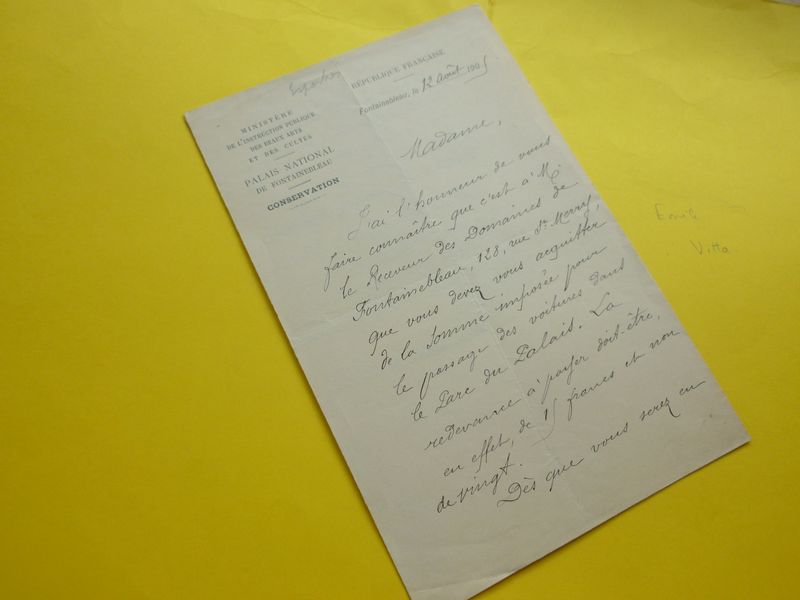 RÉPUBLIQUE FRANÇAISE
Fontainebleau, le 12 Août 1905
MINISTÈRE
DE L'INSTRUCTION PUBLIQUE
DES BEAUX ARTS
ET DES CULTES
PALAIS NATIONAL
DE FONTAINEBLEAU
CONSERVATION
Madame,
J'ai l'honneur de vous
faire connaître que c'est à M.
le Receveur des Domaines de
Fontainebleau, 128, rue St Merry,
que vous devez vous acquitter
de la somme imposée pour
le passage des voitures dans
le Parc du Palais. La
redevance à payer doit-être,
en effet, de 15 francs et non
de vingt.
Dès que vous serez en
Emile
Vitta